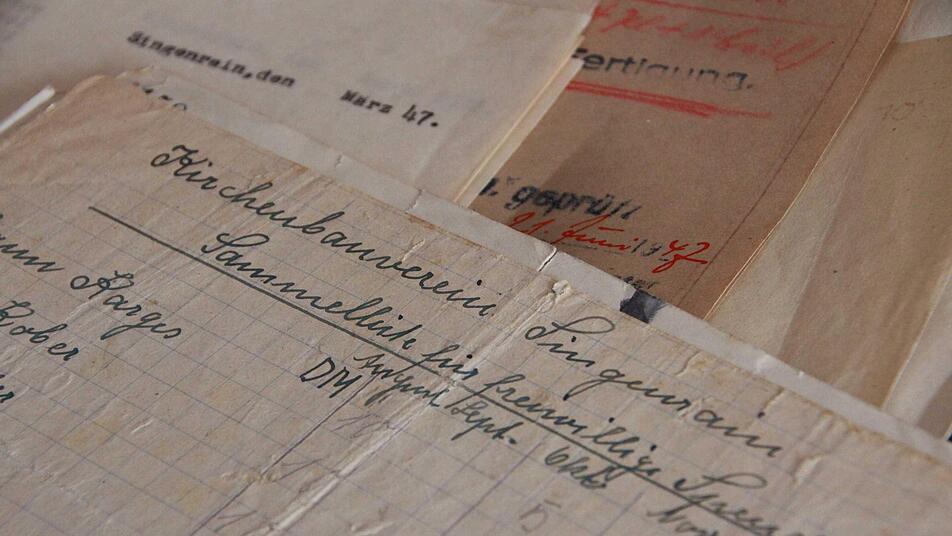 Singenrain, den März 47.
fertigung.
geprüft
21. Juni 1947
Kirchenbauverein Singenrain
Sammelliste für freiwillige
DM August Sept. Okt. Nov
Karges
Kober